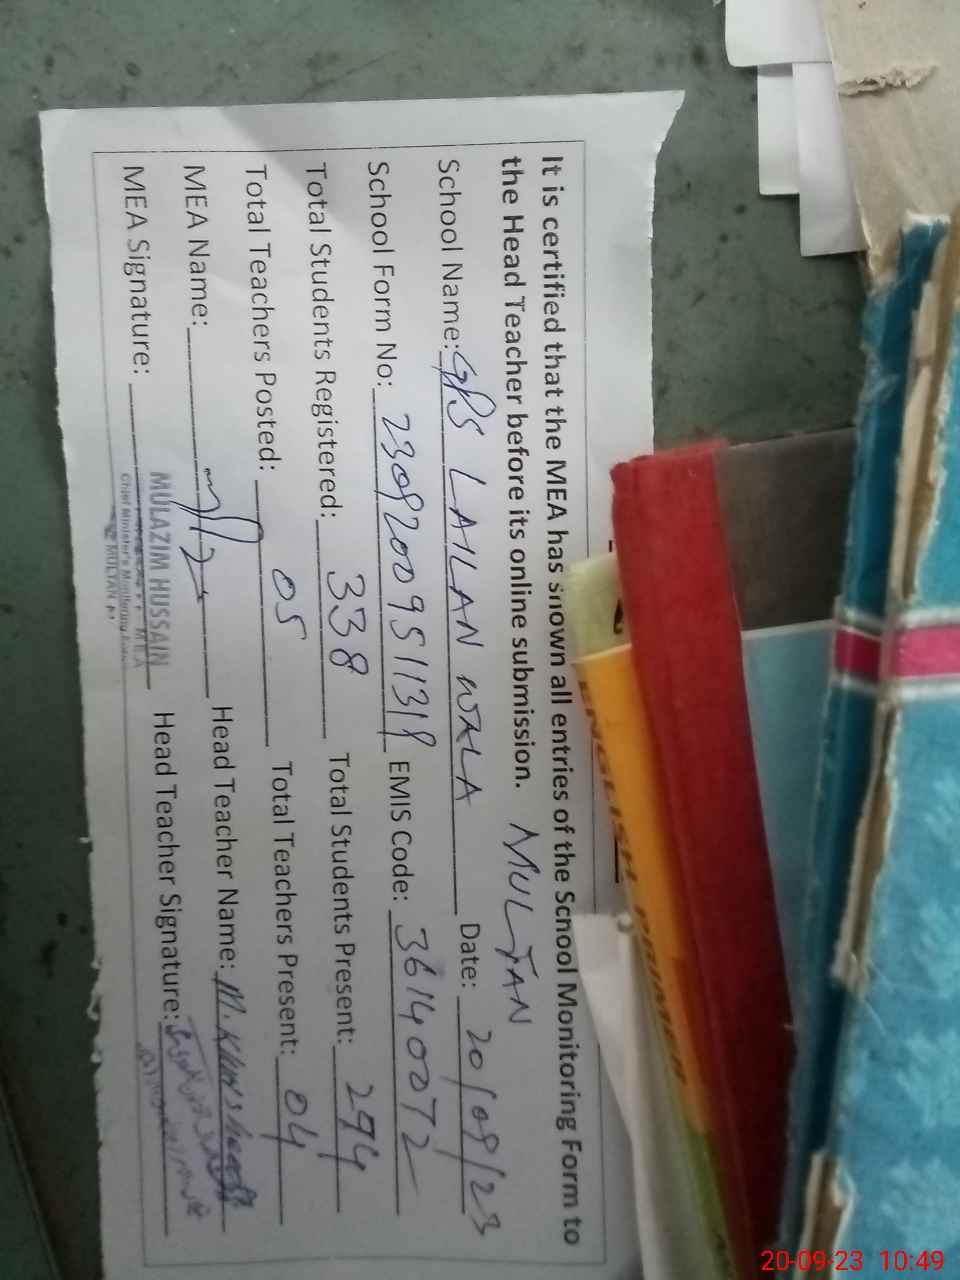 It is certified that the MEA has shown all entries of the School Monitoring Form to
the Head Teacher before its online submission. MULTAN
School Name: GPS LAILAN WALA Date: 20/09/23
School Form No: 2309200951131 EMIS Code: 36140072
Total Students Registered: 338 Total Students Present: 294
Total Teachers Posted: 05 Total Teachers Present: 04
MEA Name: Head Teacher Name: M.
MEA Signature: Head Teacher Signature:
MULAZIM HUSSAIN
MEA
Chief Minister's Monitoring
MULTAN
ENGLISH PRIMER
20-09-23 10:49